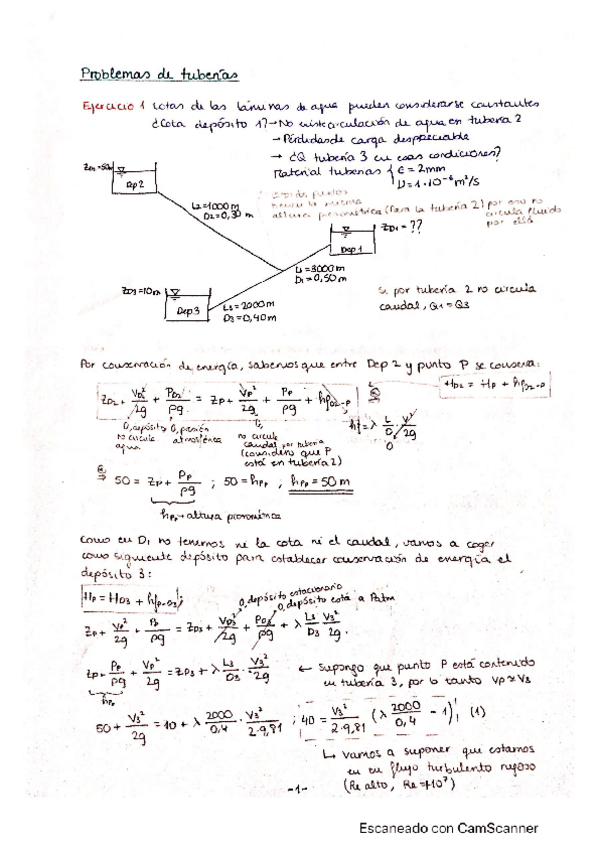 Problemas de tuberías
Ejercicio 1 cotas de las láminas de agua pueden considerarse constantes
¿Cota depósito 1? → No existe circulación de agua en tubería 2
→ Pérdidas de carga despreciable
→ ¿Q tubería 3 en esas condiciones?
Material tuberias { ε = 2mm
ν = 1·10⁻⁶ m²/s
altura piezométrica (Para la tubería 2) por eso no
circula fluido
por ella
Dep 2
L2=1000m
D2=0,30m
ZD1 = ??
Dep 1
L1=3000m
D1=0,50m
ZD3=10m
Dep 3
L3=2000m
D3=0,40m
Si por tubería 2 no circula
caudal, Q1 = Q3
Por conservación de energía, sabemos que entre Dep 2 y punto P se conserva:
HD2 = HP + hfD2-P
ZD2 + VD2²/2g + PD2/ρg = ZP + VP²/2g + PP/ρg + hfD2-P
hf = λ L/D V²/2g
0
0, depósito
no circula
agua
0, presión
atmosférica
0,
no circula
caudal por tubería
(considero que P
está en tubería 2)
50 = ZP + PP/ρg ; 50 = hPP ; hPP = 50 m
hPP → altura piezométrica
Como en D1 no tenemos ni la cota ni el caudal, vamos a coger
como siguiente depósito para establecer conservación de energía el
depósito 3:
HP = HD3 + hfP-D3 ;
0, depósito estacionario
0, depósito está a Patm
ZP + VP²/2g + PP/ρg = ZD3 + VD3²/2g + PD3/ρg + λ L3/D3 V3²/2g.
ZP + PP/ρg + VP²/2g = ZD3 + λ L3/D3 · V3²/2g
hPP
← Supongo que punto P está contenido
en tubería 3, por lo tanto VP ≈ V3
50 + V3²/2g = 10 + λ 2000/0,4 · V3²/2·9,81 ; 40 = V3²/2·9,81 (λ 2000/0,4 - 1) ; (1)
↳ vamos a suponer que estamos
en un flujo turbulento rugoso
-1-
Escaneado con CamScanner